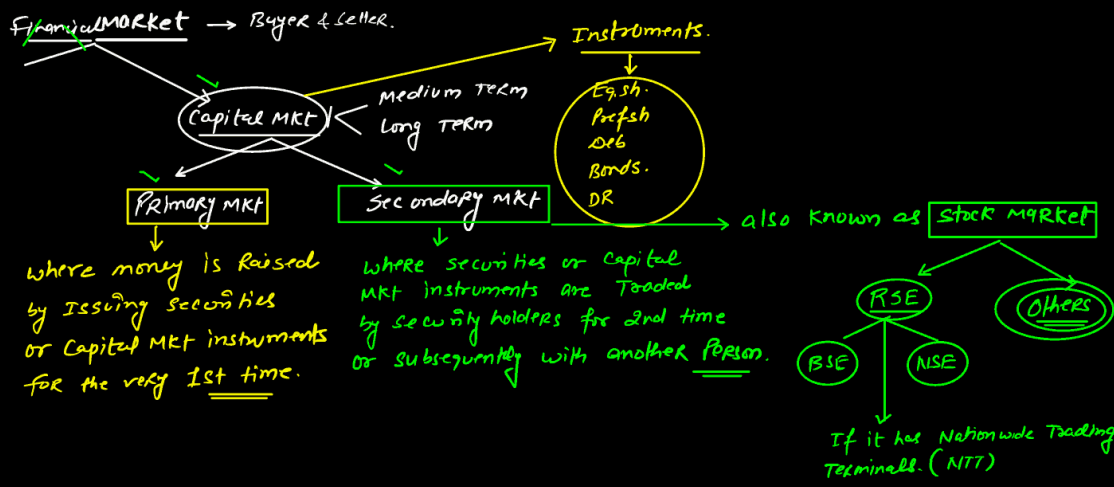 Financial MARKET → Buyer & Seller.
Instruments.
Capital MKt
Medium Term
Long Term
Eq.sh.
Prefsh
Deb
Bonds.
DR
PRimary MKt
Secondary MKt
also known as Stock Market
where money is Raised
by Issuing securities
or Capital MKt instruments
for the very 1st time.
where securities or capital
MKt instruments are Traded
by security holders for 2nd time
or subsequently with another Person.
RSE
Others
BSE
NSE
If it has Nationwide Trading
Terminals. (NTT)